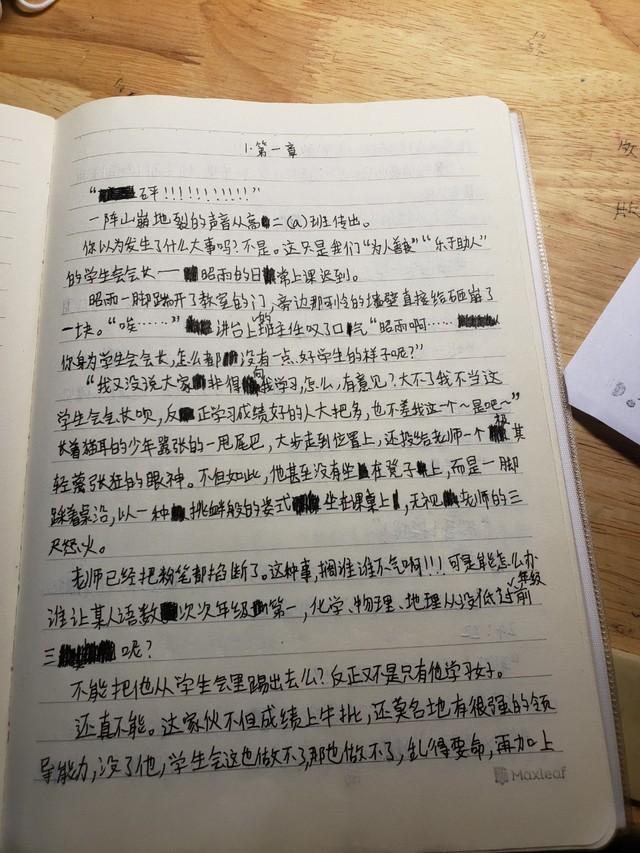 1.第一章
“砰!!!!!!!!!!!”
一阵山崩地裂的声音从高二(a)班传出。
你以为发生了什么大事吗?不是。这只是我们“为人善良”“乐于助人”
的学生会会长——昭雨的日常上课迟到。
昭雨一脚踹开了教室的门,旁边那可怜的墙壁直接给砸崩了
一块。“唉……”讲台上的班主任叹了口气“昭雨啊……
你身为学生会会长,怎么都没有一点好学生的样子呢?”
“我又没说大家非得向我学习,怎么,有意见?大不了我不当这
学生会会长呗,反正学习成绩好的人大把多,也不差我这一个~是吧~”
长着猫耳的少年嚣张的一甩尾巴,大步走到位置上,还投给老师一个极其
轻蔑张狂的眼神。不但如此,他甚至没有坐在凳子上,而是一脚
踩着桌沿,以一种挑衅般的姿式坐在课桌上,无视老师的三
尺怒火。
老师已经把粉笔都掐断了。这种事,搁谁谁不气啊!!!可是能怎么办
谁让某人语数次次年级第一,化学、物理、地理从没低过年级前
三呢?
不能把他从学生会里踢出去么?反正又不是只有他学习好。
还真不能。这家伙不但成绩上牛批,还莫名地有很强的领
导能力,没了他,学生会这也做不了,那也做不了,乱得要命,再加上
Maxleaf